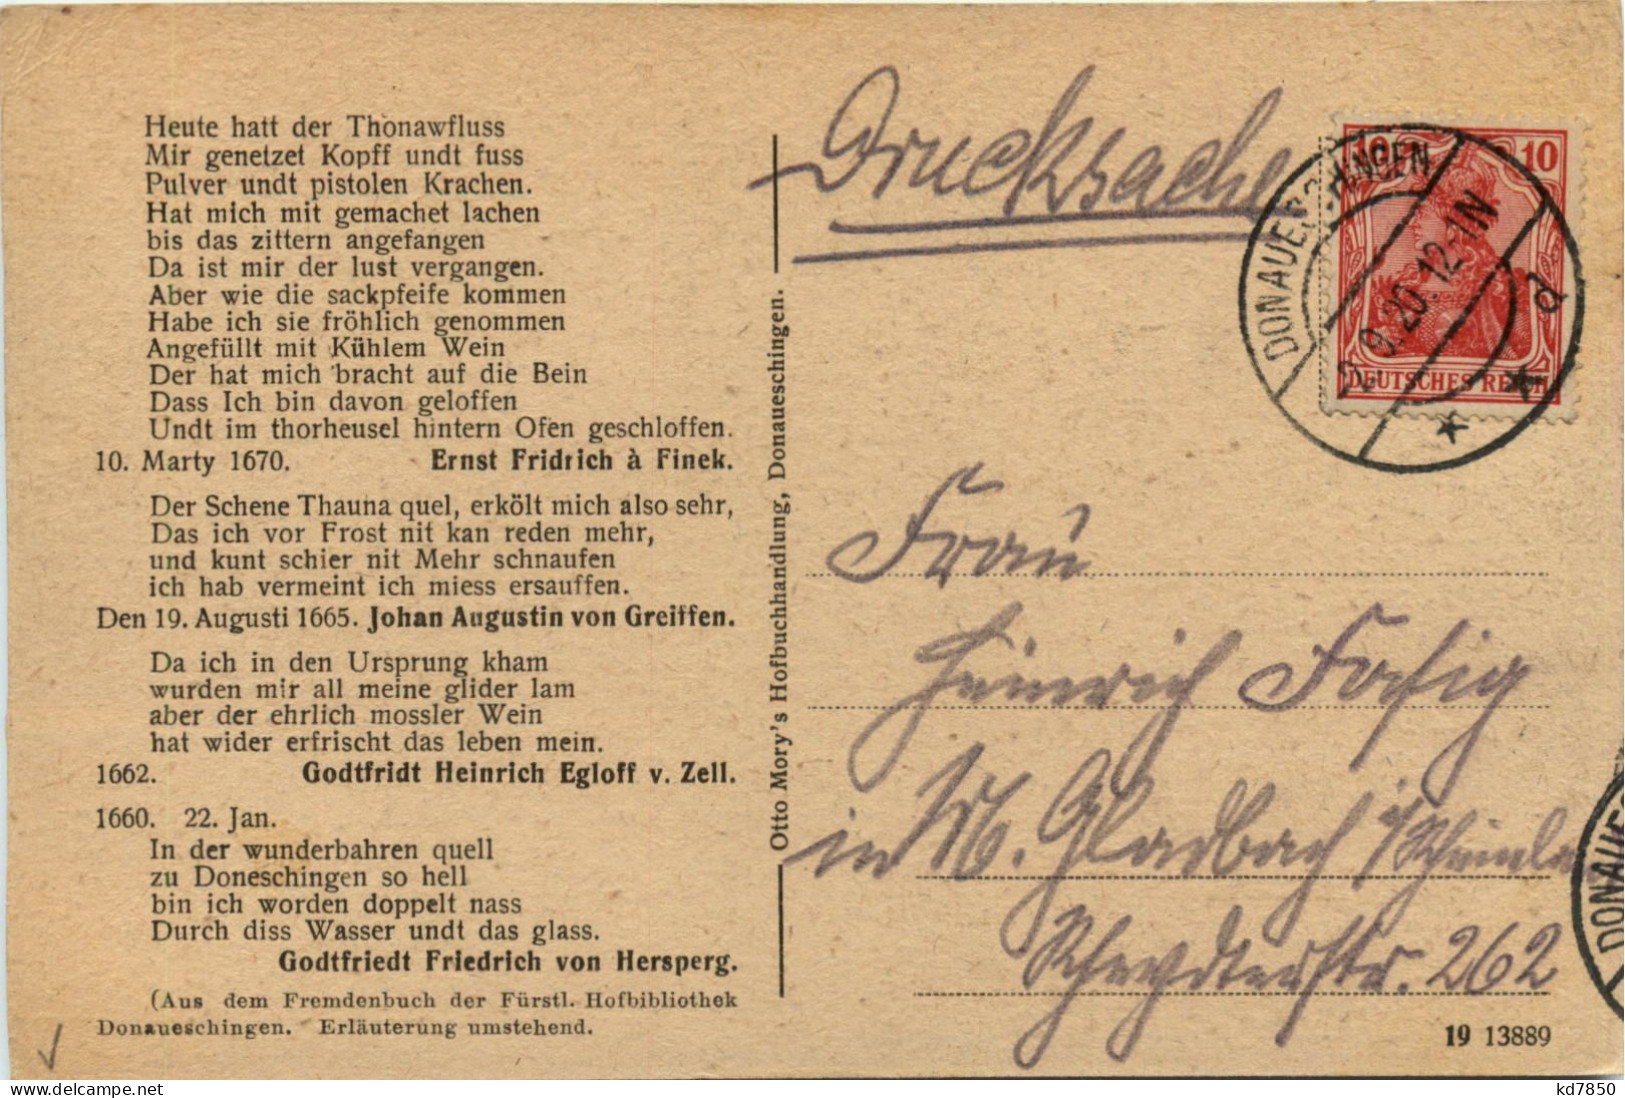 Heute hatt der Thonawfluss
Mir genetzet Kopff undt fuss
Pulver undt pistolen Krachen.
Hat mich mit gemachet lachen
bis das zittern angefangen
Da ist mir der lust vergangen.
Aber wie die sackpfeife kommen
Habe ich sie fröhlich genommen
Angefüllt mit Kühlem Wein
Der hat mich bracht auf die Bein
Dass Ich bin davon geloffen
Undt im thorheusel hintern Ofen geschloffen.
10. Marty 1670. Ernst Fridrich à Finek.
Der Schene Thauna quel, erkölt mich also sehr,
Das ich vor Frost nit kan reden mehr,
und kunt schier nit Mehr schnaufen
ich hab vermeint ich miess ersauffen.
Den 19. Augusti 1665. Johan Augustin von Greiffen.
Da ich in den Ursprung kham
wurden mir all meine glider lam
aber der ehrlich mossler Wein
hat wider erfrischt das leben mein.
1662. Godtfridt Heinrich Egloff v. Zell.
1660. 22. Jan.
In der wunderbahren quell
zu Doneschingen so hell
bin ich worden doppelt nass
Durch diss Wasser undt das glass.
Godtfriedt Friedrich von Hersperg.
(Aus dem Fremdenbuch der Fürstl. Hofbibliothek
Donaueschingen. Erläuterung umstehend.
Otto Mory's Hofbuchhandlung, Donaueschingen.
Drucksache
10 10
DEUTSCHES REICH
DONAUESCHINGEN
9.20.12-1N
d
Frau
Heinrich
in M. Gladbach
262
DONAUES
19 13889
delcampe.net
kd7850